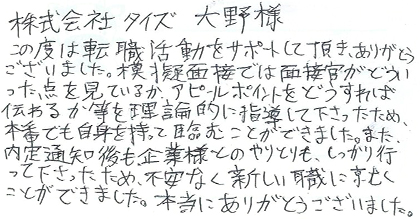 株式会社タイズ 大野様
この度は転職活動をサポートして頂き、ありがとう
ございました。模擬面接では面接官がどうい
った点を見ているか、アピールポイントをどうすれば
伝わるか等を理論的に指導して下さったため、
本番でも自身を持って臨むことができました。また、
内定通知後も企業様とのやりとりも、しっかり行
って下さったため、不安なく新しい職に臨む
ことができました。本当にありがとうございました。